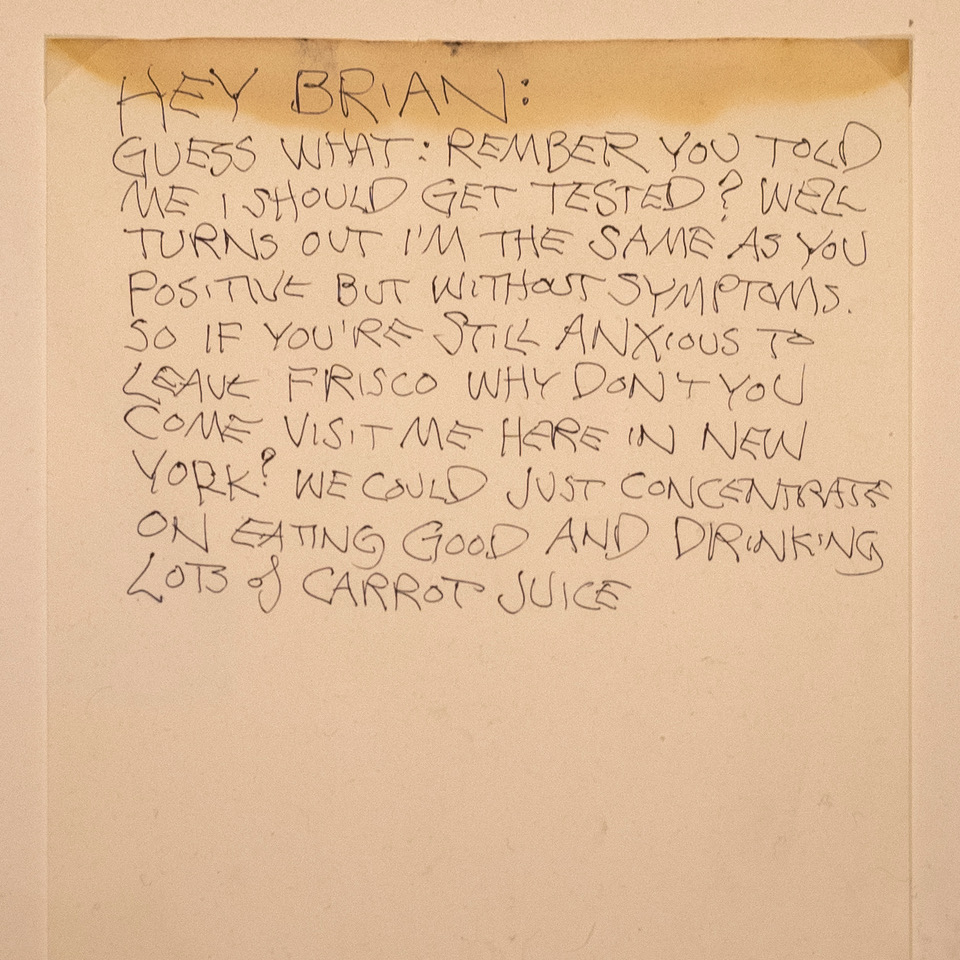 HEY BRIAN:
GUESS WHAT: REMBER YOU TOLD
ME I SHOULD GET TESTED? WELL
TURNS OUT I'M THE SAME AS YOU
POSITIVE BUT WITHOUT SYMPTOMS.
SO IF YOU'RE STILL ANXIOUS TO
LEAVE FRISCO WHY DON'T YOU
COME VISIT ME HERE IN NEW
YORK? WE COULD JUST CONCENTRATE
ON EATING GOOD AND DRINKING
LOTS of CARROT JUICE